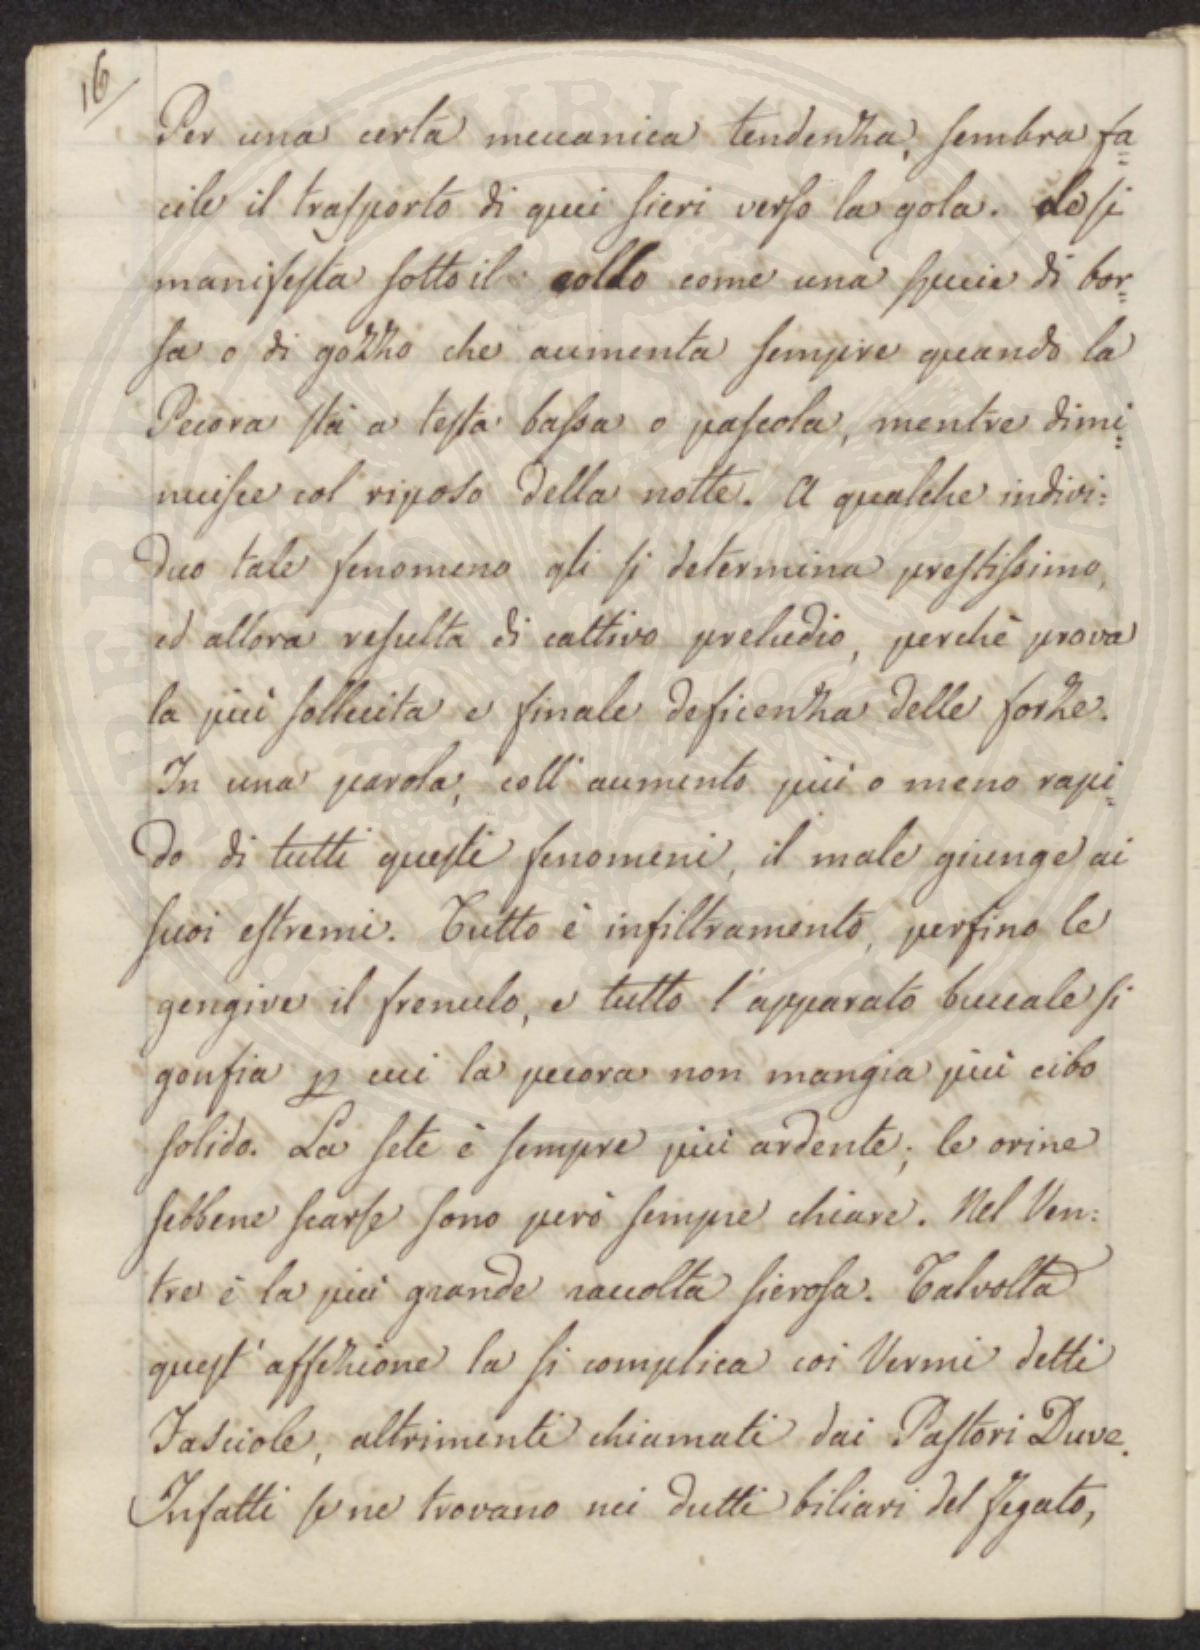 16
Per una certa meccanica tendenza, sembra fa=
cile il trasporto di quei sieri verso la gola. Lo si
manifesta sotto il collo come una specie di bor=
sa o di gozzo che aumenta sempre quando la
Pecora stà a testa bassa o pascola, mentre dimi=
nuisce col riposo della notte. A qualche indivi=
duo tale fenomeno gli si determina prestissimo,
ed allora resulta di cattivo preludio, perchè prova
la più sollecita e finale deficenza delle forze.
In una parola, coll'aumento più o meno rapi=
do di tutti questi fenomeni, il male giunge ai
suoi estremi. Tutto è infiltramento, perfino le
gengive il frenulo, e tutto l'apparato buccale si
gonfia p cui la pecora non mangia più cibo
solido. La sete è sempre più ardente; le orine
sebbene scarse sono però sempre chiare. Nel Ven=
tre è la più grande raccolta sierosa. Talvolta
quest'affezione la si complica coi Vermi detti
Fasciole, altrimenti chiamati dai Pastori Duve.
Infatti se ne trovano nei dutti biliari del fegato,